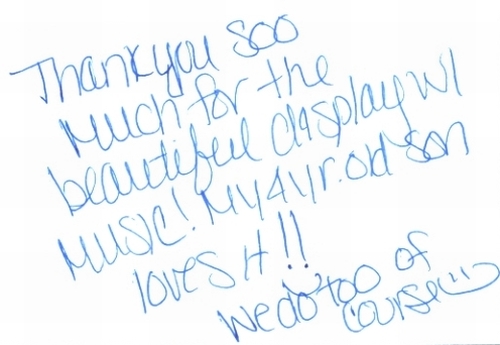 Thankyou soo
much for the
beautiful display w/
music! My 4 yr. old son
loves it!!
We do too of
course